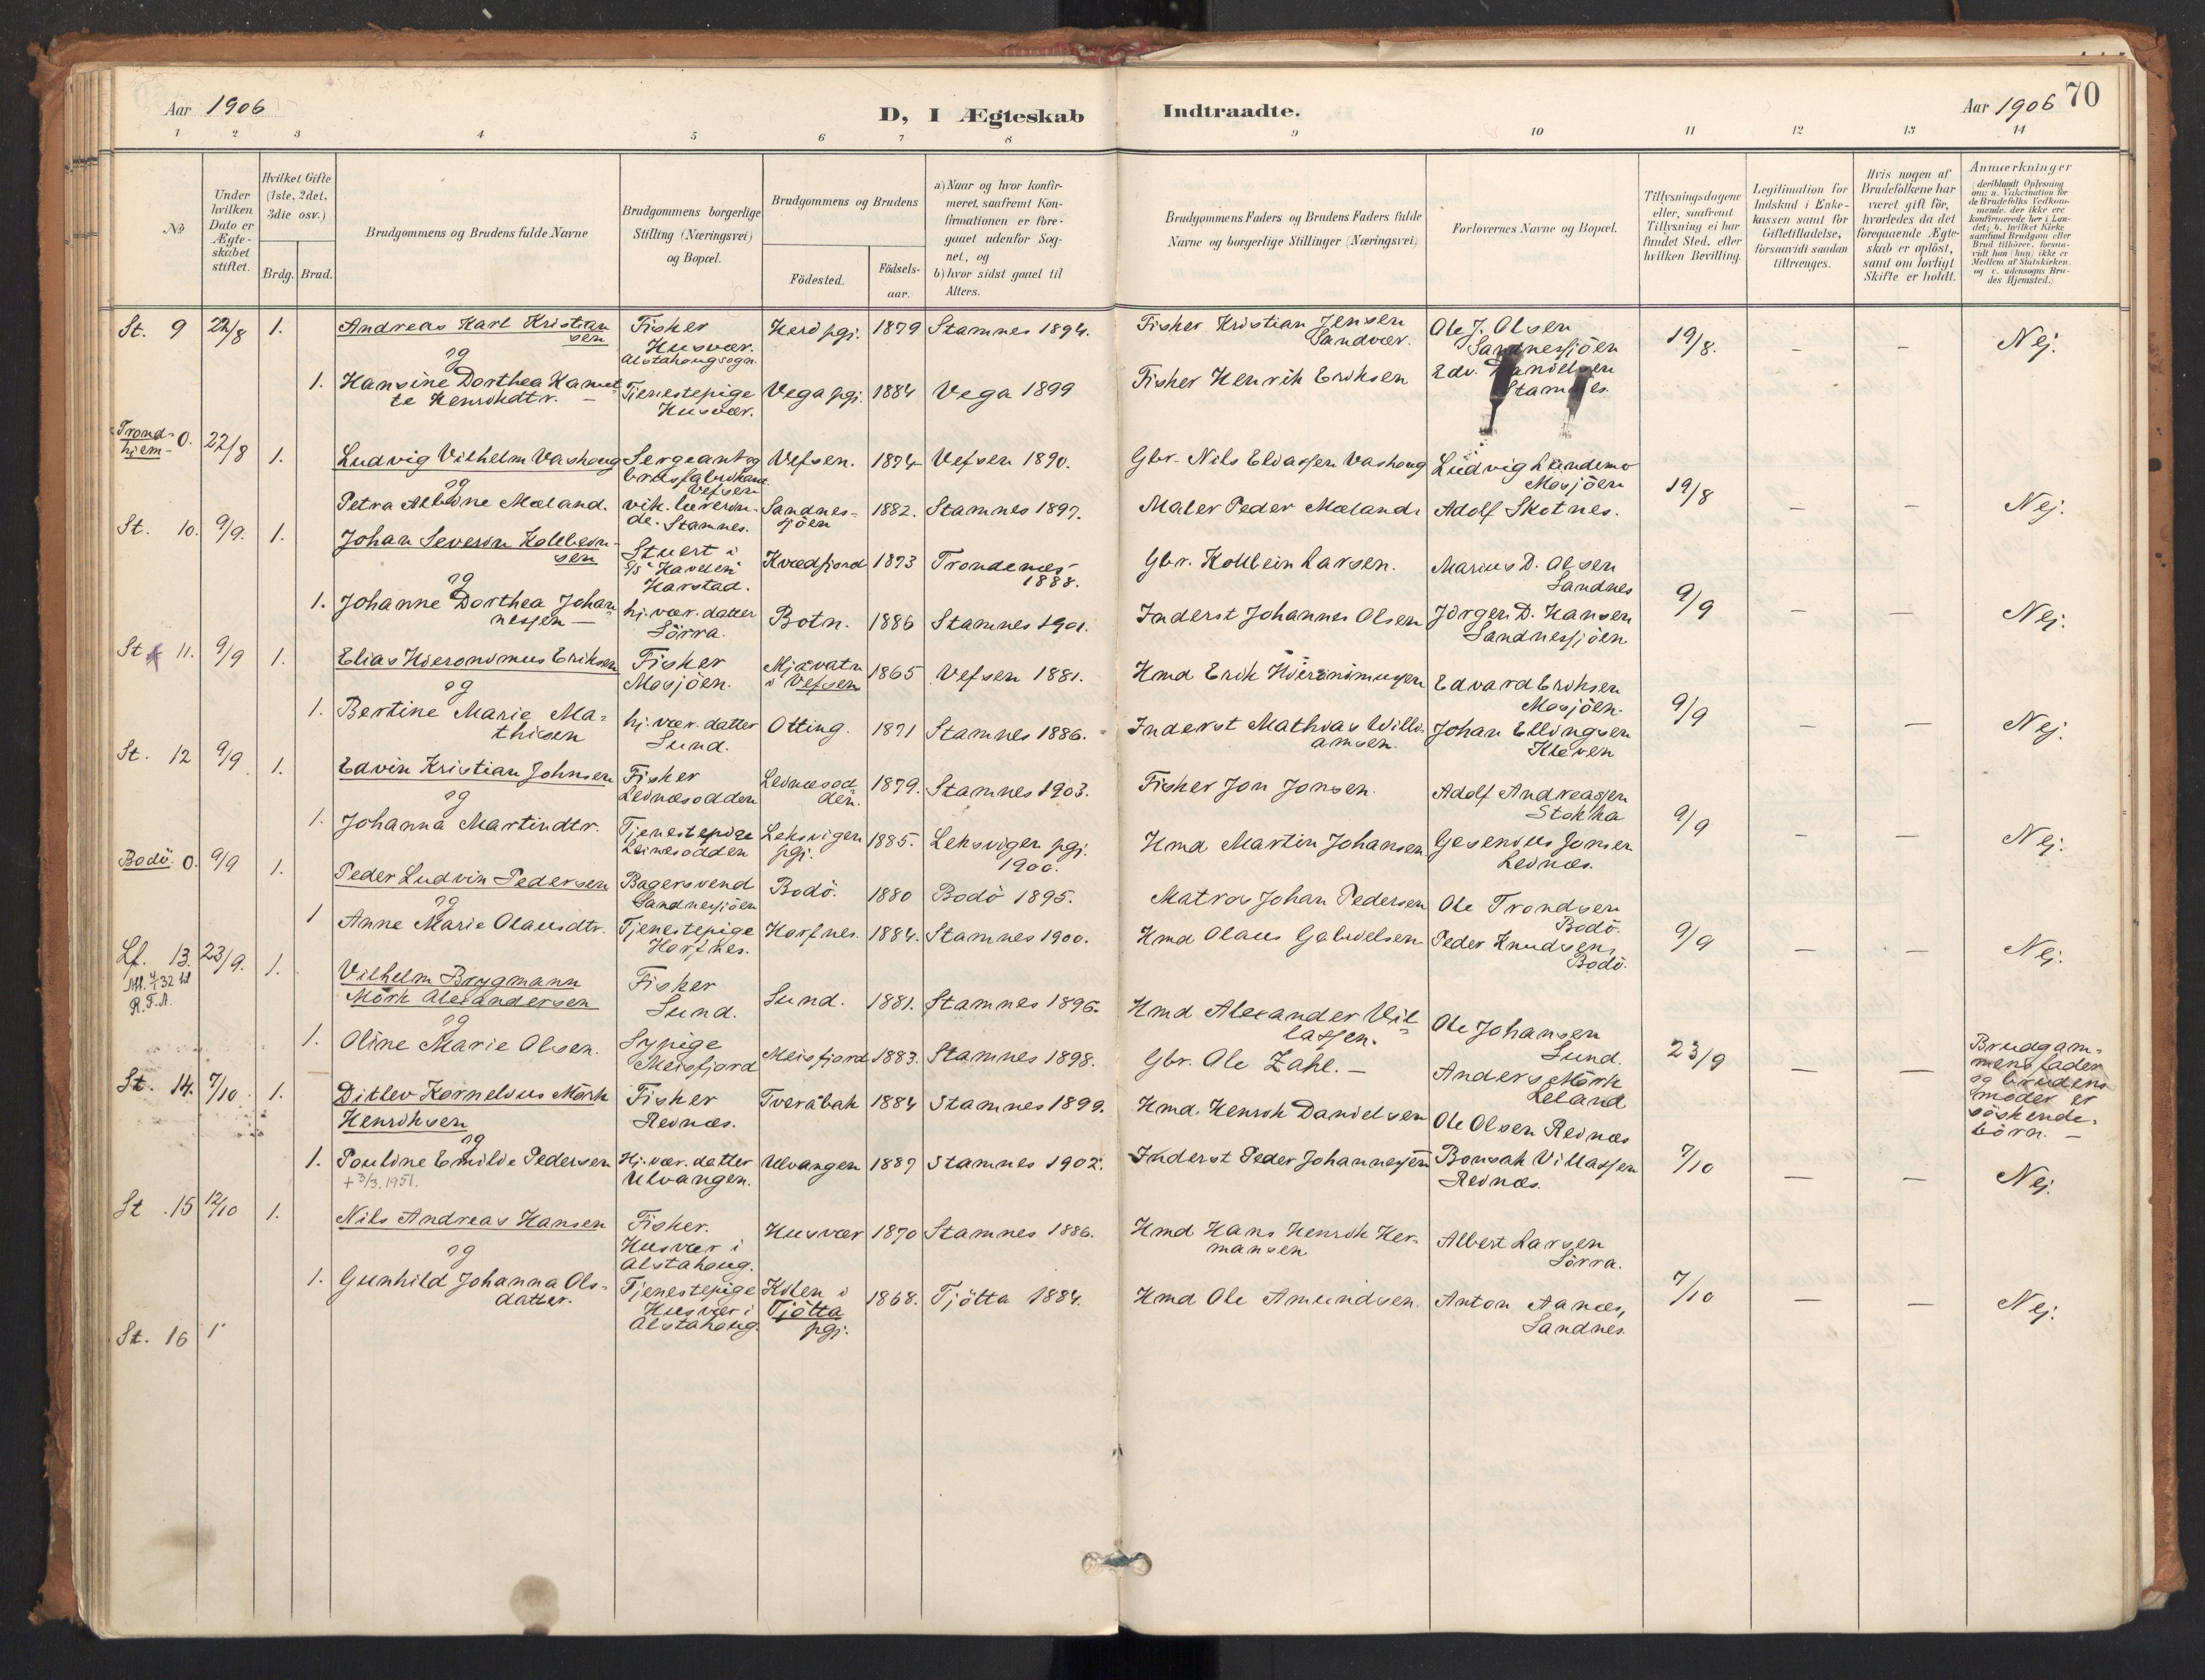 Aar 1906
D, I Ægteskab
Indtraadte.
Aar 1906
70
1 2 3 4 5 6 7 8 9 10 11 12 13 14
No
Under hvilken Dato er Ægteskabet stiftet.
Hvilket Gifte (1ste, 2det, 3die osv.)
Brdg. Brud.
Brudgommens og Brudens fulde Navne
Brudgommens borgerlige Stilling (Næringsvei) og Bopæl.
Brudgommens og Brudens
Födested.
Födsels-aar.
a) Naar og hvor konfirmeret, saafremt Konfirmationen er foregaaet udenfor Sognet, og
b) hvor sidst gaaet til Alters.
Brudgommens Faders og Brudens Faders fulde Navne og borgerlige Stillinger (Næringsvei)
Forlovernes Navne og Bopæl.
Tillysningsdagene eller, saafremt Tillysning ei har fundet Sted, efter hvilken Bevilling.
Legitimation for Indskud i Enkekassen samt for Giftetilladelse, forsaavidt saadan tiltrænges.
Hvis nogen af Brudefolkene har været gift för, hvorledes da det foregaaende Ægteskab er oplöst, samt om lovligt Skifte er holdt.
Anmærkninger deriblandt Oplysning om: a. Vakcination for de Brudefolks Vedkommende, der ikke ere konfirmerede her i Landet; b. hvilket Kirkesamfund Brudgom eller Brud tilhörer, forsaavidt han (hun) ikke er Medlem af Statskirken. og c. udensogns Brudes Hjemsted.
St. 9 22/8 1. Andreas Karl Kristiansen Fisker Husvær. Alstahougsogn. Herö pgj. 1879 Stamnes 1894. Fisker Kristian Jensen Sandvær. Ole J. Olsen Sandnessjöen 19/8. — — Nej.
og
1. Hansine Dorthea Kanutte Henrikdtr. — Tjenestepige Husvær. Vega pgj. 1884 Vega 1899 Fisker Henrik Eriksen Edv. Danielsen Stamnes.
Trondhjem- 0. 22/8 1. Ludvig Vilhelm Vashaug Sergeant og brusfabrikant Vefsen Vefsen. 1874 Vefsen 1890. Gbr. Nils Eliassen Vashaug Ludvig Lindemo Mosjöen 19/8 — — Nej.
og
Petra Albine Mæland. vik. lærerinde. Stamnes. Sandnessjöen 1882. Stamnes 1897. Maler Peder Mæland Adolf Skotnes.
St. 10. 9/9. 1. Johan Severin Kolbeinsen Stuert i S/S "Havelen" Harstad. Kvædfjord 1873 Trondenes 1888. Gbr. Kolbein Larsen. Marius D. Olsen Sandnes 9/9 — — Nej.
og
1. Johanne Dorthea Johannessen — hj. vær. datter Sörra. Botn. 1886 Stamnes 1901. Inderst Johannes Olsen Jörgen D. Hansen Sandnessjöen
St. 11. 9/9 1. Elias Hieronimus Eriksen Fisker Mosjöen. Mjåvatn i Vefsen 1865 Vefsen 1881. Hmd Erik Hieronimussen Edvard Eriksen Mosjöen. 9/9 — — Nej.
og
1. Bertine Marie Mathisen hj. vær. datter Sund. Otting. 1871 Stamnes 1886. Inderst Mathias Williamsen. Johan Ellingsen Kleven
St. 12 9/9 1. Edvin Kristian Johnsen Fisker Leinæsodden Leinæsodden. 1879. Stamnes 1903. Fisker Jon Jonsen. Adolf Andreassen Stokka 9/9 — — Nej.
og
1. Johanna Martindtr. Tjenestepige Leinesodden Leksvigen pgj. 1885. Leksvigen pgj. 1900. Hmd Martin Johansen Gesenius Jonsen Leinæs.
Bodö. 0. 9/9 1. Peder Ludvin Pedersen Bagersvend Sandnessjöen Bodö. 1880 Bodö 1895. Matros Johan Pedersen Ole Trondsen Bodö. 9/9 — — Nej.
og
1 Anne Marie Olausdtr. Tjenestepige Horfnes. Horfnes. 1884. Stamnes 1900. Hmd Olaus Gabrielsen Peder Knudsen, Bodö.
Lf. 13. 23/9. 1. Vilhelm Brygmann Mörk Alexandersen Fisker Sund. Sund. 1881. Stamnes 1896. Hmd Alexander Villassen. Ole Johansen Sund. 23/9 — — Brudgommens fader og brudens moder er söskendebörn. —
R.T.A.
og
1. Oline Marie Olsen. Sypige Meisfjord Meisfjord 1883. Stamnes 1898. Gbr. Ole Zahl. — Anders Mörk Leland
St. 14. 7/10 1. Ditlev Kornelius Mörk Henriksen Fisker Reinæs. Tveråbak 1884 Stamnes 1899. Hmd. Henrik Danielsen Ole Olsen Reinæs 7/10 — — Nej.
og
1. Pouline Emilie Pedersen Hj. vær. datter Ulvangen. Ulvangen 1887 Stamnes 1902. Inderst Peder Johannessen Bonsak Villassen Reinæs.
+ 3/3. 1951.
St. 15 12/10 1. Nils Andreas Hansen Fisker. Husvær i Alstahoug. Husvær 1870 Stamnes 1886. Hmd Hans Henrik Hermansen Albert Larsen Sörra. 7/10 — — Nej.
og
1. Gunhild Johanna Olsdatter. Tjenestepige Husvær i Alstahoug. Kilen i Tjötta pgj. 1868. Tjötta 1884. Hmd Ole Amundsen. Anton Aanes, Sandnes.
St. 16 1